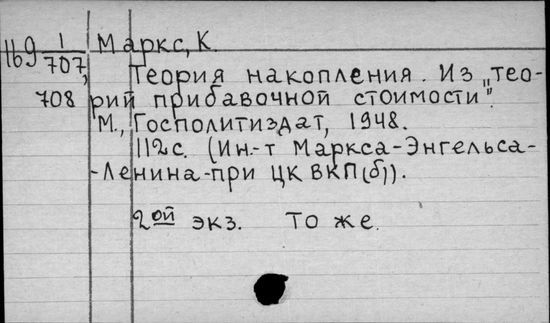 169 1/707, Маркс, К.
708
Теория накопления. Из „тео-
рий прибавочной стоимости".
М., Госполитиздат, 1948.
112с. (Ин.-т Маркса-Энгельса-
-Ленина-при ЦК ВКП(б)).
2ой экз. То же.